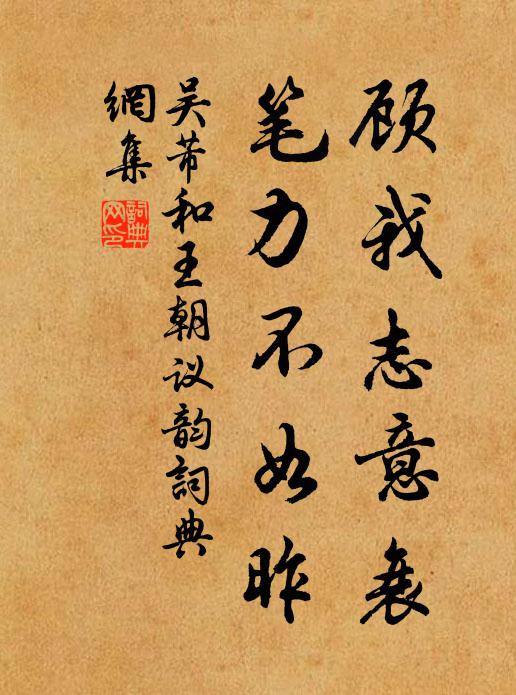 顾我志意衰
笔力不如昨
吴芾和王朝议韵詞典
網集
詞典
网印